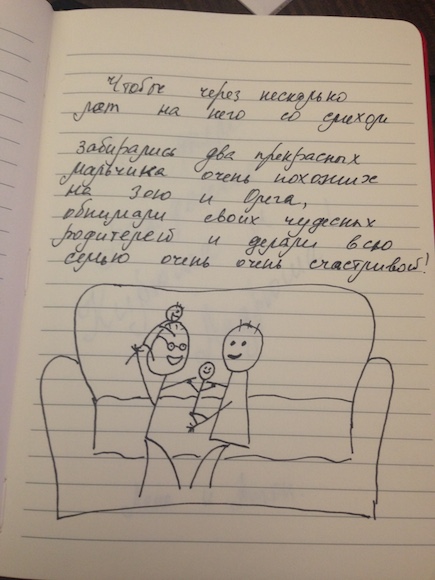 Чтобы через несколько
лет на него со смехом
забирались два прекрасных
мальчика очень похожих
на Зою и Олега,
обнимали своих чудесных
родителей и делали всю
семью очень очень счастливой!